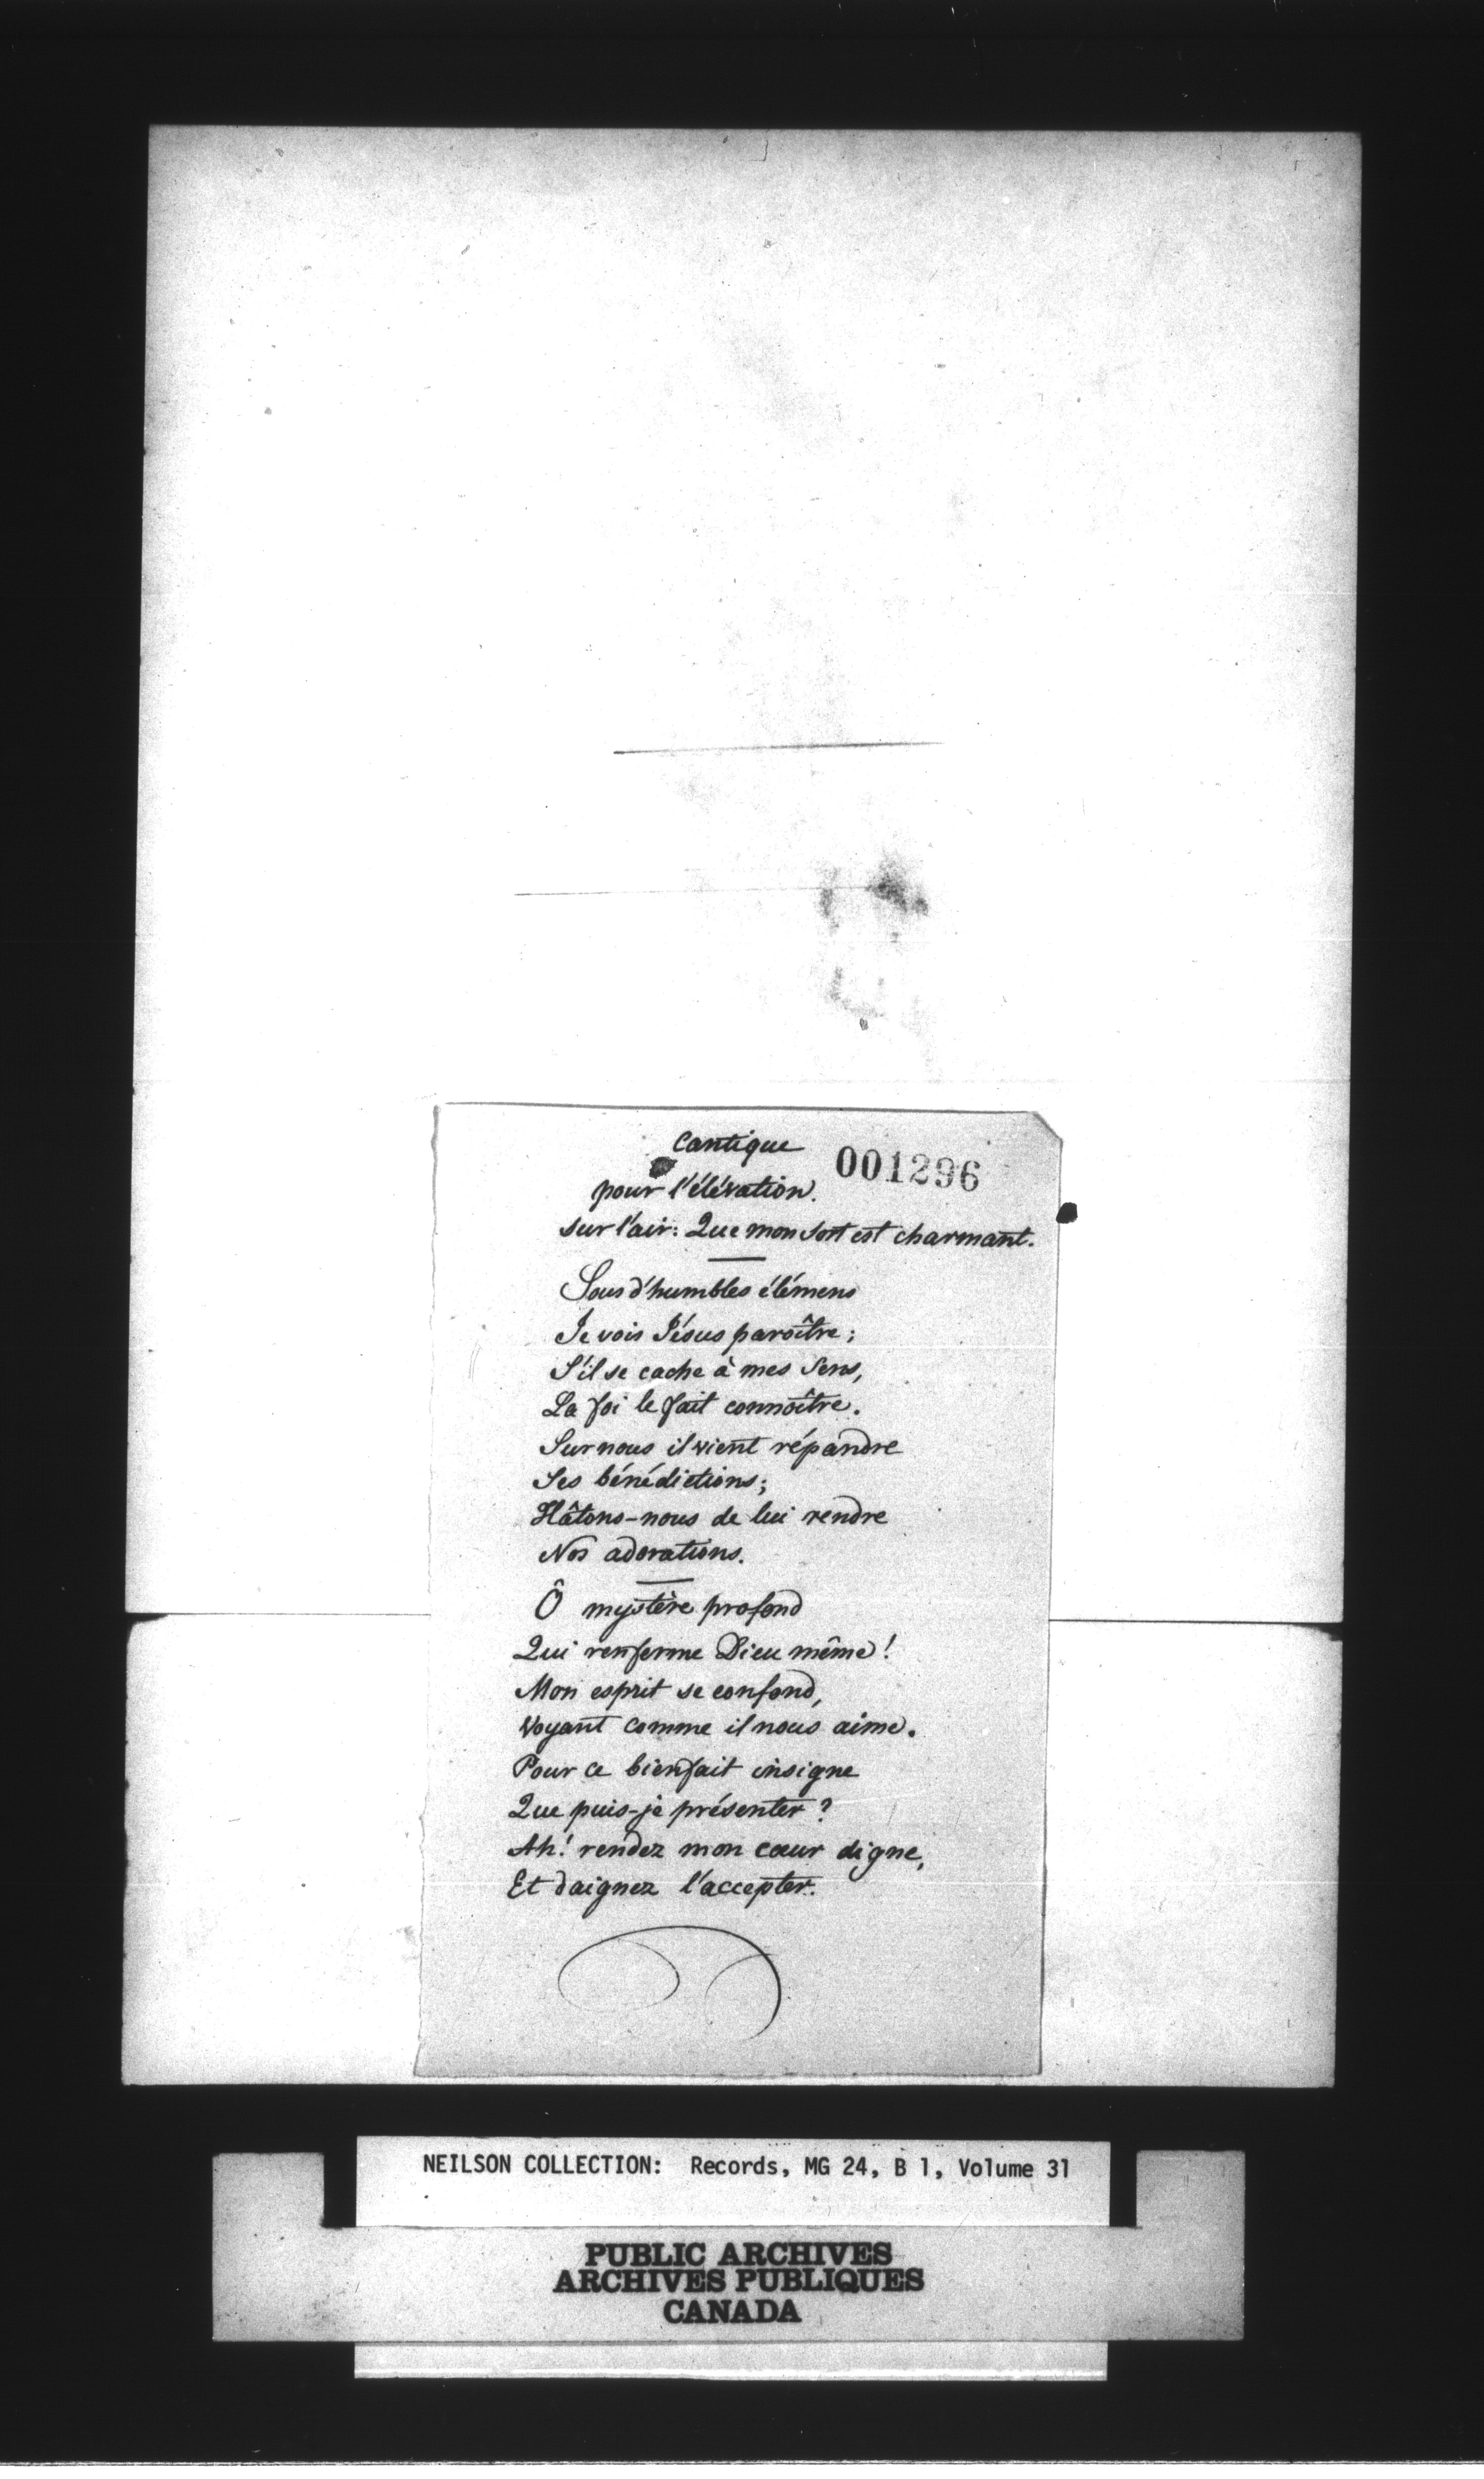 Cantique
001296
pour l'élévation.
sur l'air: Que mon sort est charmant.
Sous d'humbles élémens
Je vois Jésus paroître;
S'il se cache à mes sens,
La foi le fait connoître.
Sur nous il vient répandre
Ses bénédictions;
Hâtons-nous de lui rendre
Nos adorations.
Ô mystère profond
Qui renferme Dieu même!
Mon esprit se confond,
Voyant comme il nous aime.
Pour ce bienfait insigne
Que puis-je présenter?
Ah! rendez mon cœur digne,
Et daignez l'accepter.
NEILSON COLLECTION: Records, MG 24, B 1, Volume 31
PUBLIC ARCHIVES
ARCHIVES PUBLIQUES
CANADA